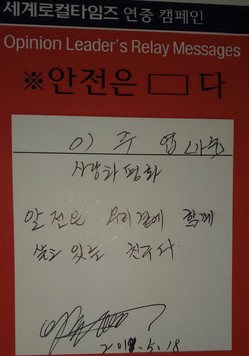 세계로컬타임즈 연중 캠페인
Opinion Leader's Relay Messages
※안전은 □ 다
이 주 엽
사랑과 평화
안전은 우리곁에 함께
있는
5.18